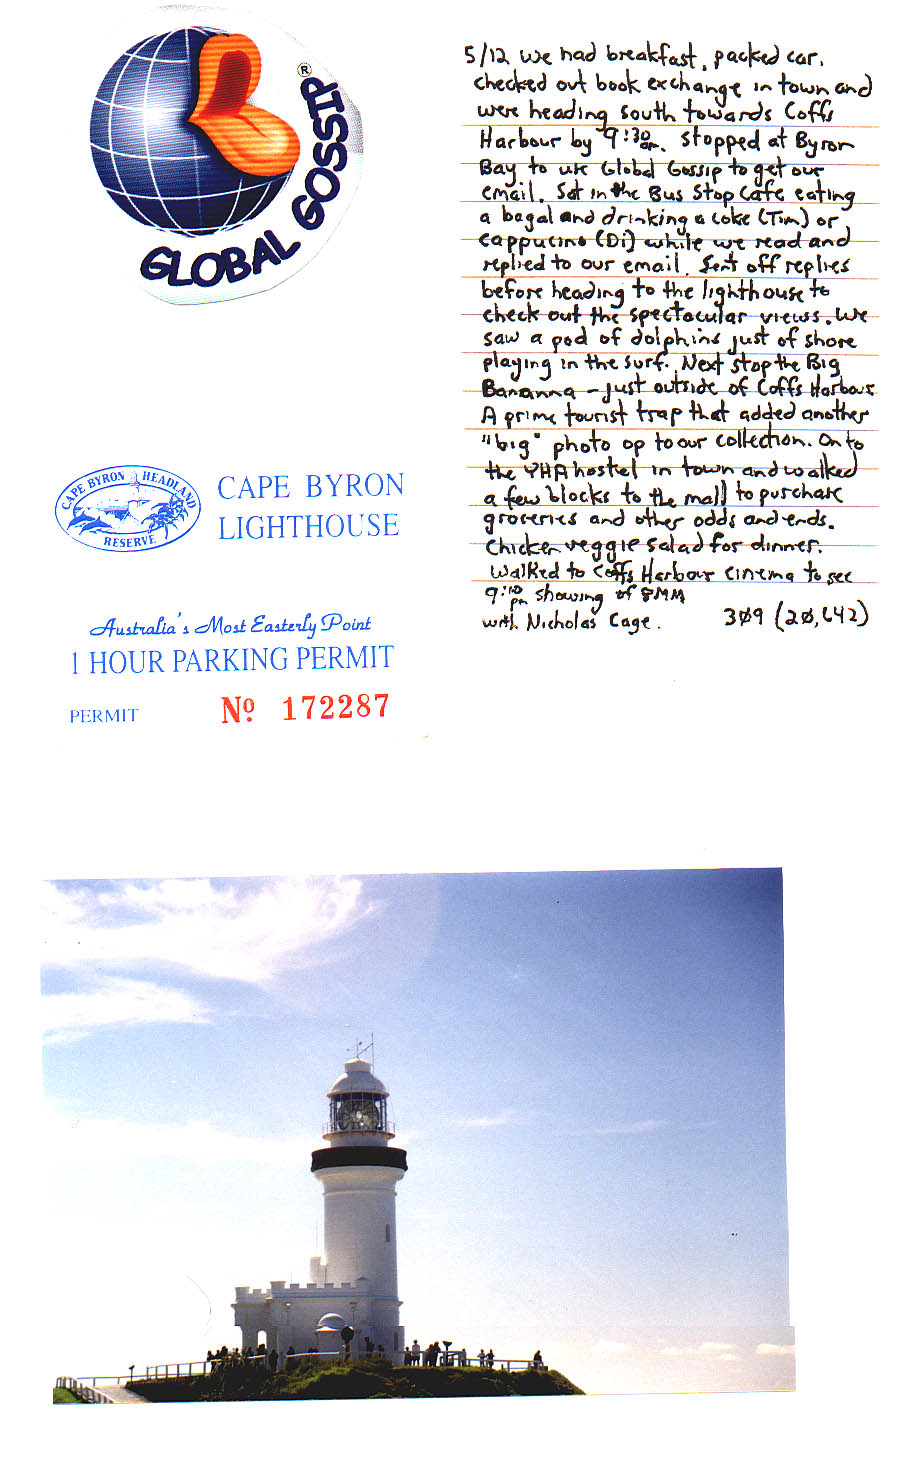 GLOBAL GOSSIP®
5/12 we had breakfast, packed car,
checked out book exchange in town and
were heading south towards Coffs
Harbour by 9:30 am. Stopped at Byron
Bay to use Global Gossip to get our
email. Sat in the Bus Stop Cafe eating
a bagal and drinking a coke (Tim) or
cappucino (Di) while we read and
replied to our email. Sent off replies
before heading to the lighthouse to
check out the spectacular views. We
saw a pod of dolphins just of shore
playing in the surf. Next stop the Big
Bananna - just outside of Coffs Harbour.
A prime tourist trap that added another
"big" photo op to our collection. On to
the YHA hostel in town and walked
a few blocks to the mall to purchase
groceries and other odds and ends.
Chicken veggie salad for dinner.
Walked to Coffs Harbour cinema to see
9:10 pm showing of 8MM
with Nicholas Cage. 309 (20,642)
CAPE BYRON HEADLAND
RESERVE
CAPE BYRON
LIGHTHOUSE
Australia's Most Easterly Point
1 HOUR PARKING PERMIT
PERMIT No 172287